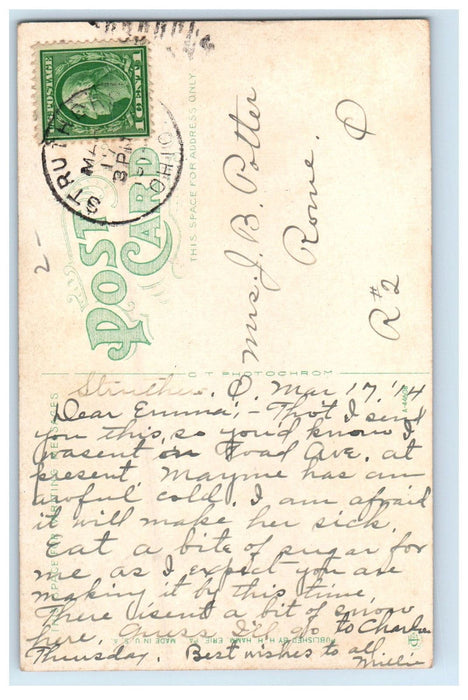 STRUTHERS
OHIO
MAR
17
3 PM
U.S. POSTAGE
1 CENT 1
POST CARD
THIS SPACE FOR ADDRESS ONLY
Mrs. J. B. Potter
Rome O
R#2
2-
C T PHOTOCHROM
SPACE FOR WRITING MESSAGES
PUBLISHED BY H. H. HAMM, ERIE, PA.
MADE IN U.S.A.
Struthers, O. Mar 17, '14
Dear Emma; - Tho't I send
you this, so you'd know I
wasent on Road Ave. at
present Mayme has an
awful cold. I am afraid
it will make her sick.
Eat a bite of sugar for
me as I expect you are
making it by this time.
There isent a bit of snow
here. I'll go to Charlie
Thursday. Best wishes to all
Millie